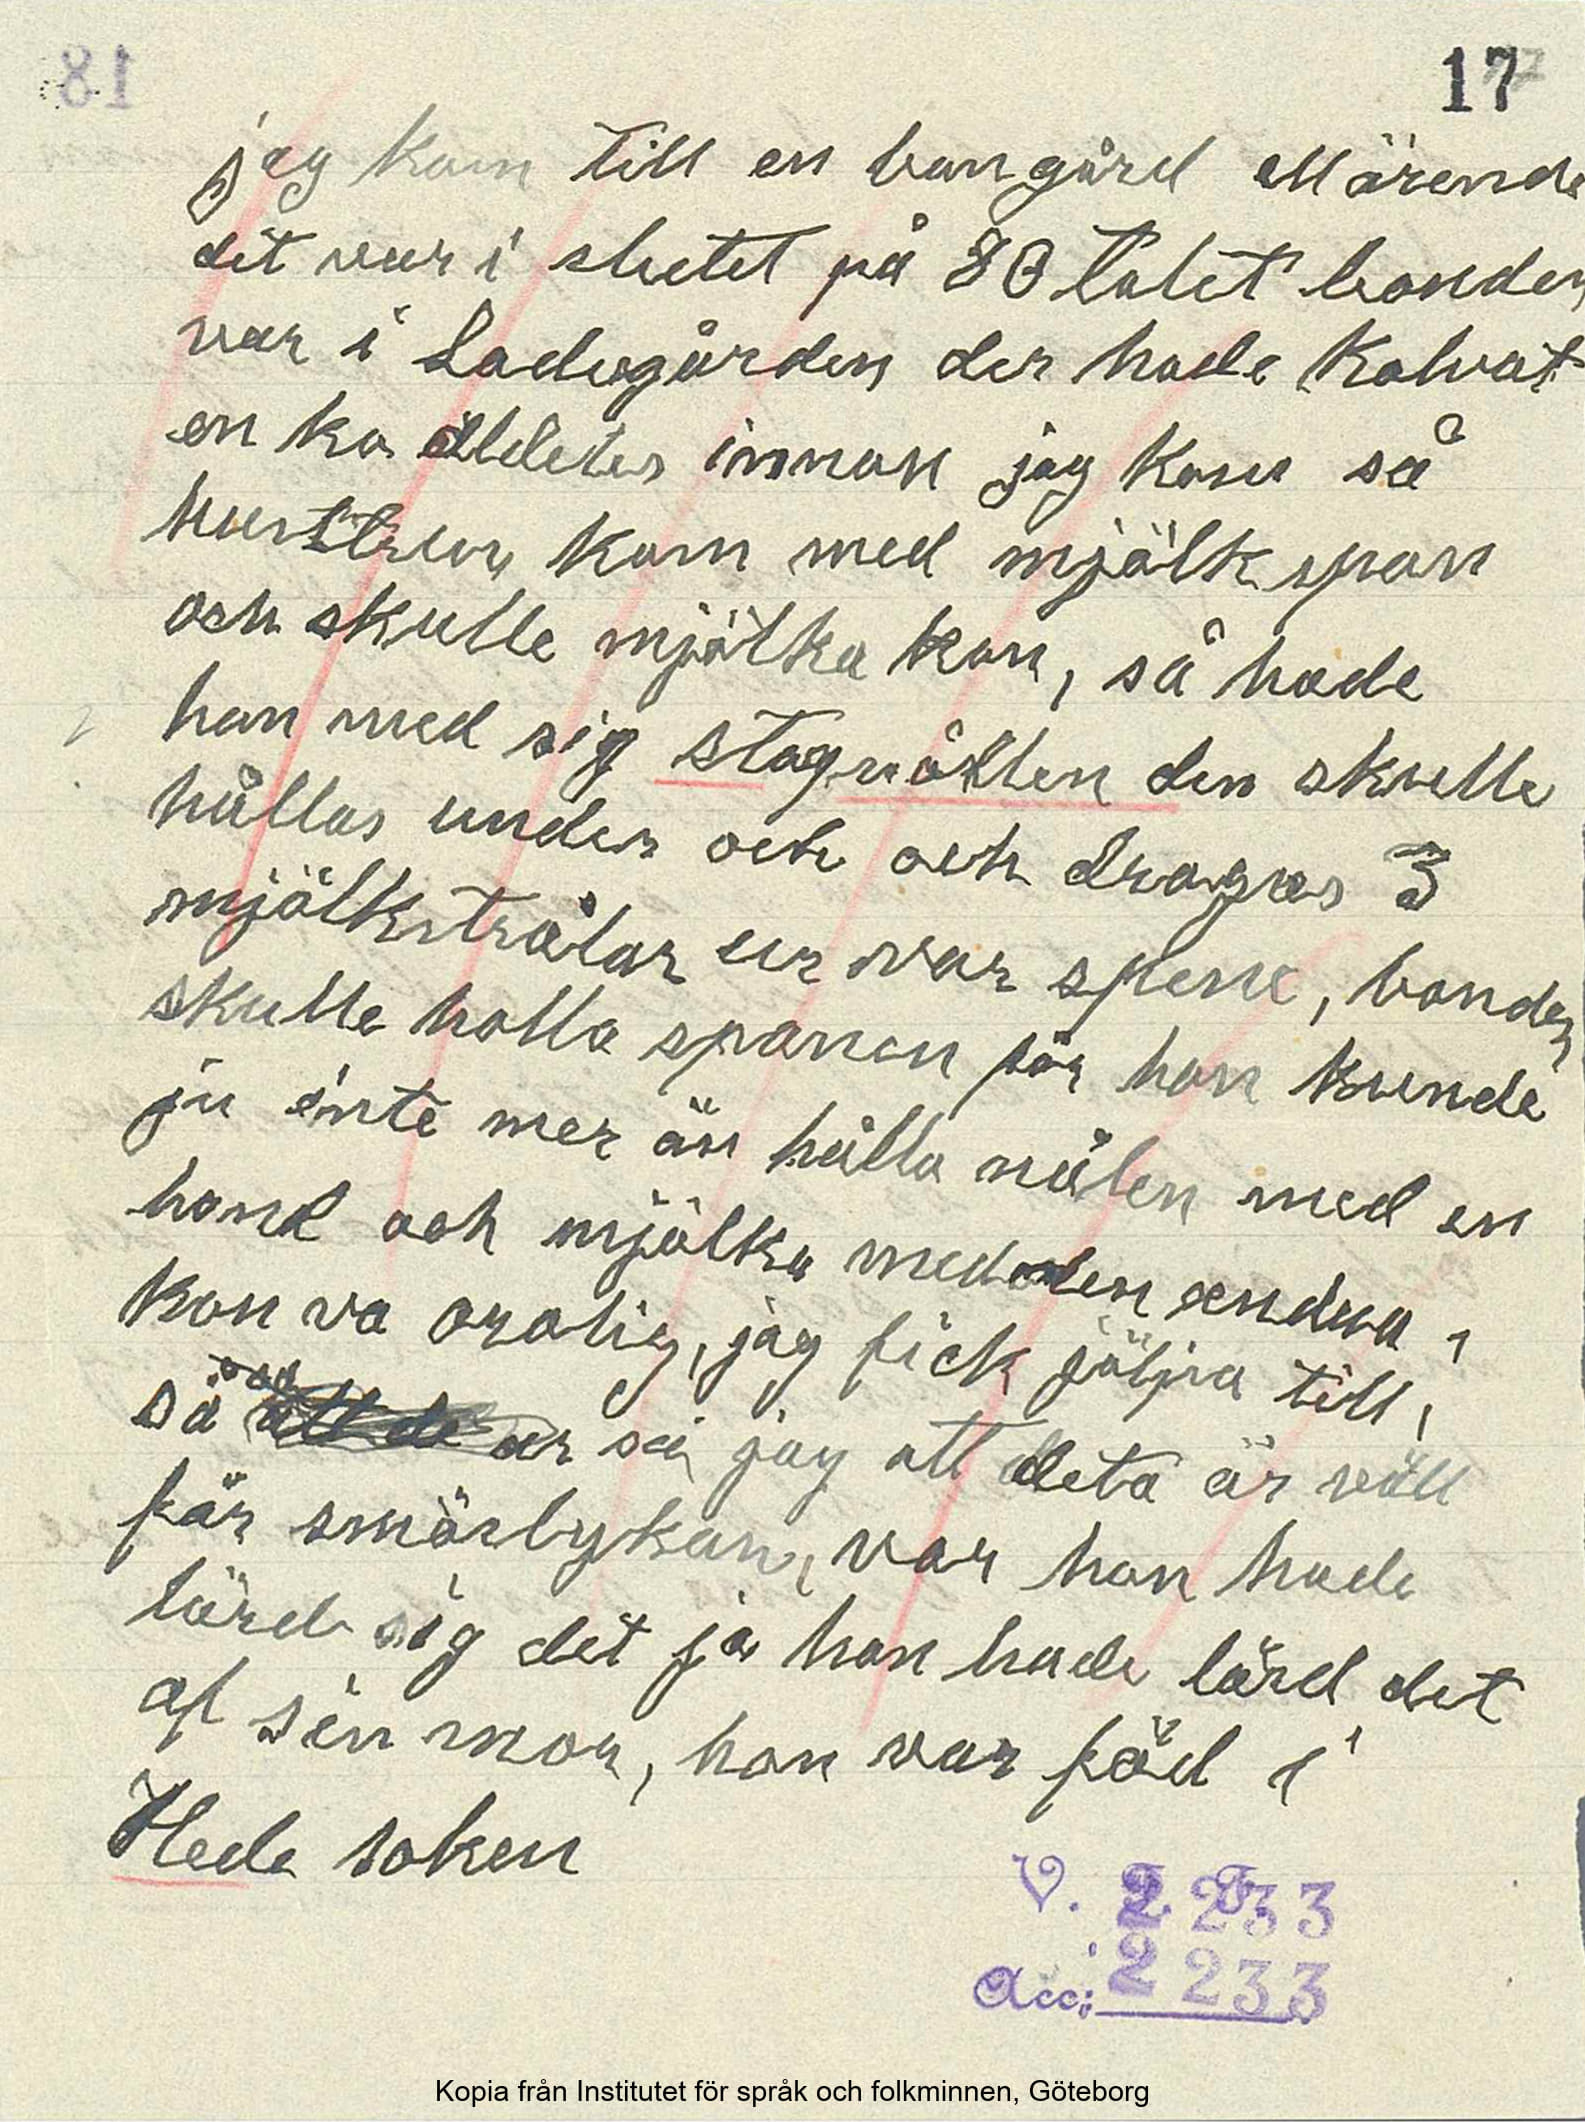 18
17
jag kom till en bongård ett ärende
det var i slutet på 80 talet bonden
var i Ladugården der hade kalvat
en ko alldeles innan jag kom så
hustrun kom med mjölk span
och skulle mjölka kon, så hade
hon med sig stagnålen den skulle
hållas under och och dragas 3
mjölkstrålar ur var spene, bonden
skulle holla spanen för hon kunde
ju inte mer än hålla nålen med en
hand och mjölka med den endra,
kon va orolig, jag fick jälpa till,
så sa jag att deta är väll
för smörlykan, var hon hade
lärd sig det ja hon hade lärd det
af sin mor, hon var född i
Hede soken
V. F. 2233
Acc: 2233
Kopia från Institutet för språk och folkminnen, Göteborg